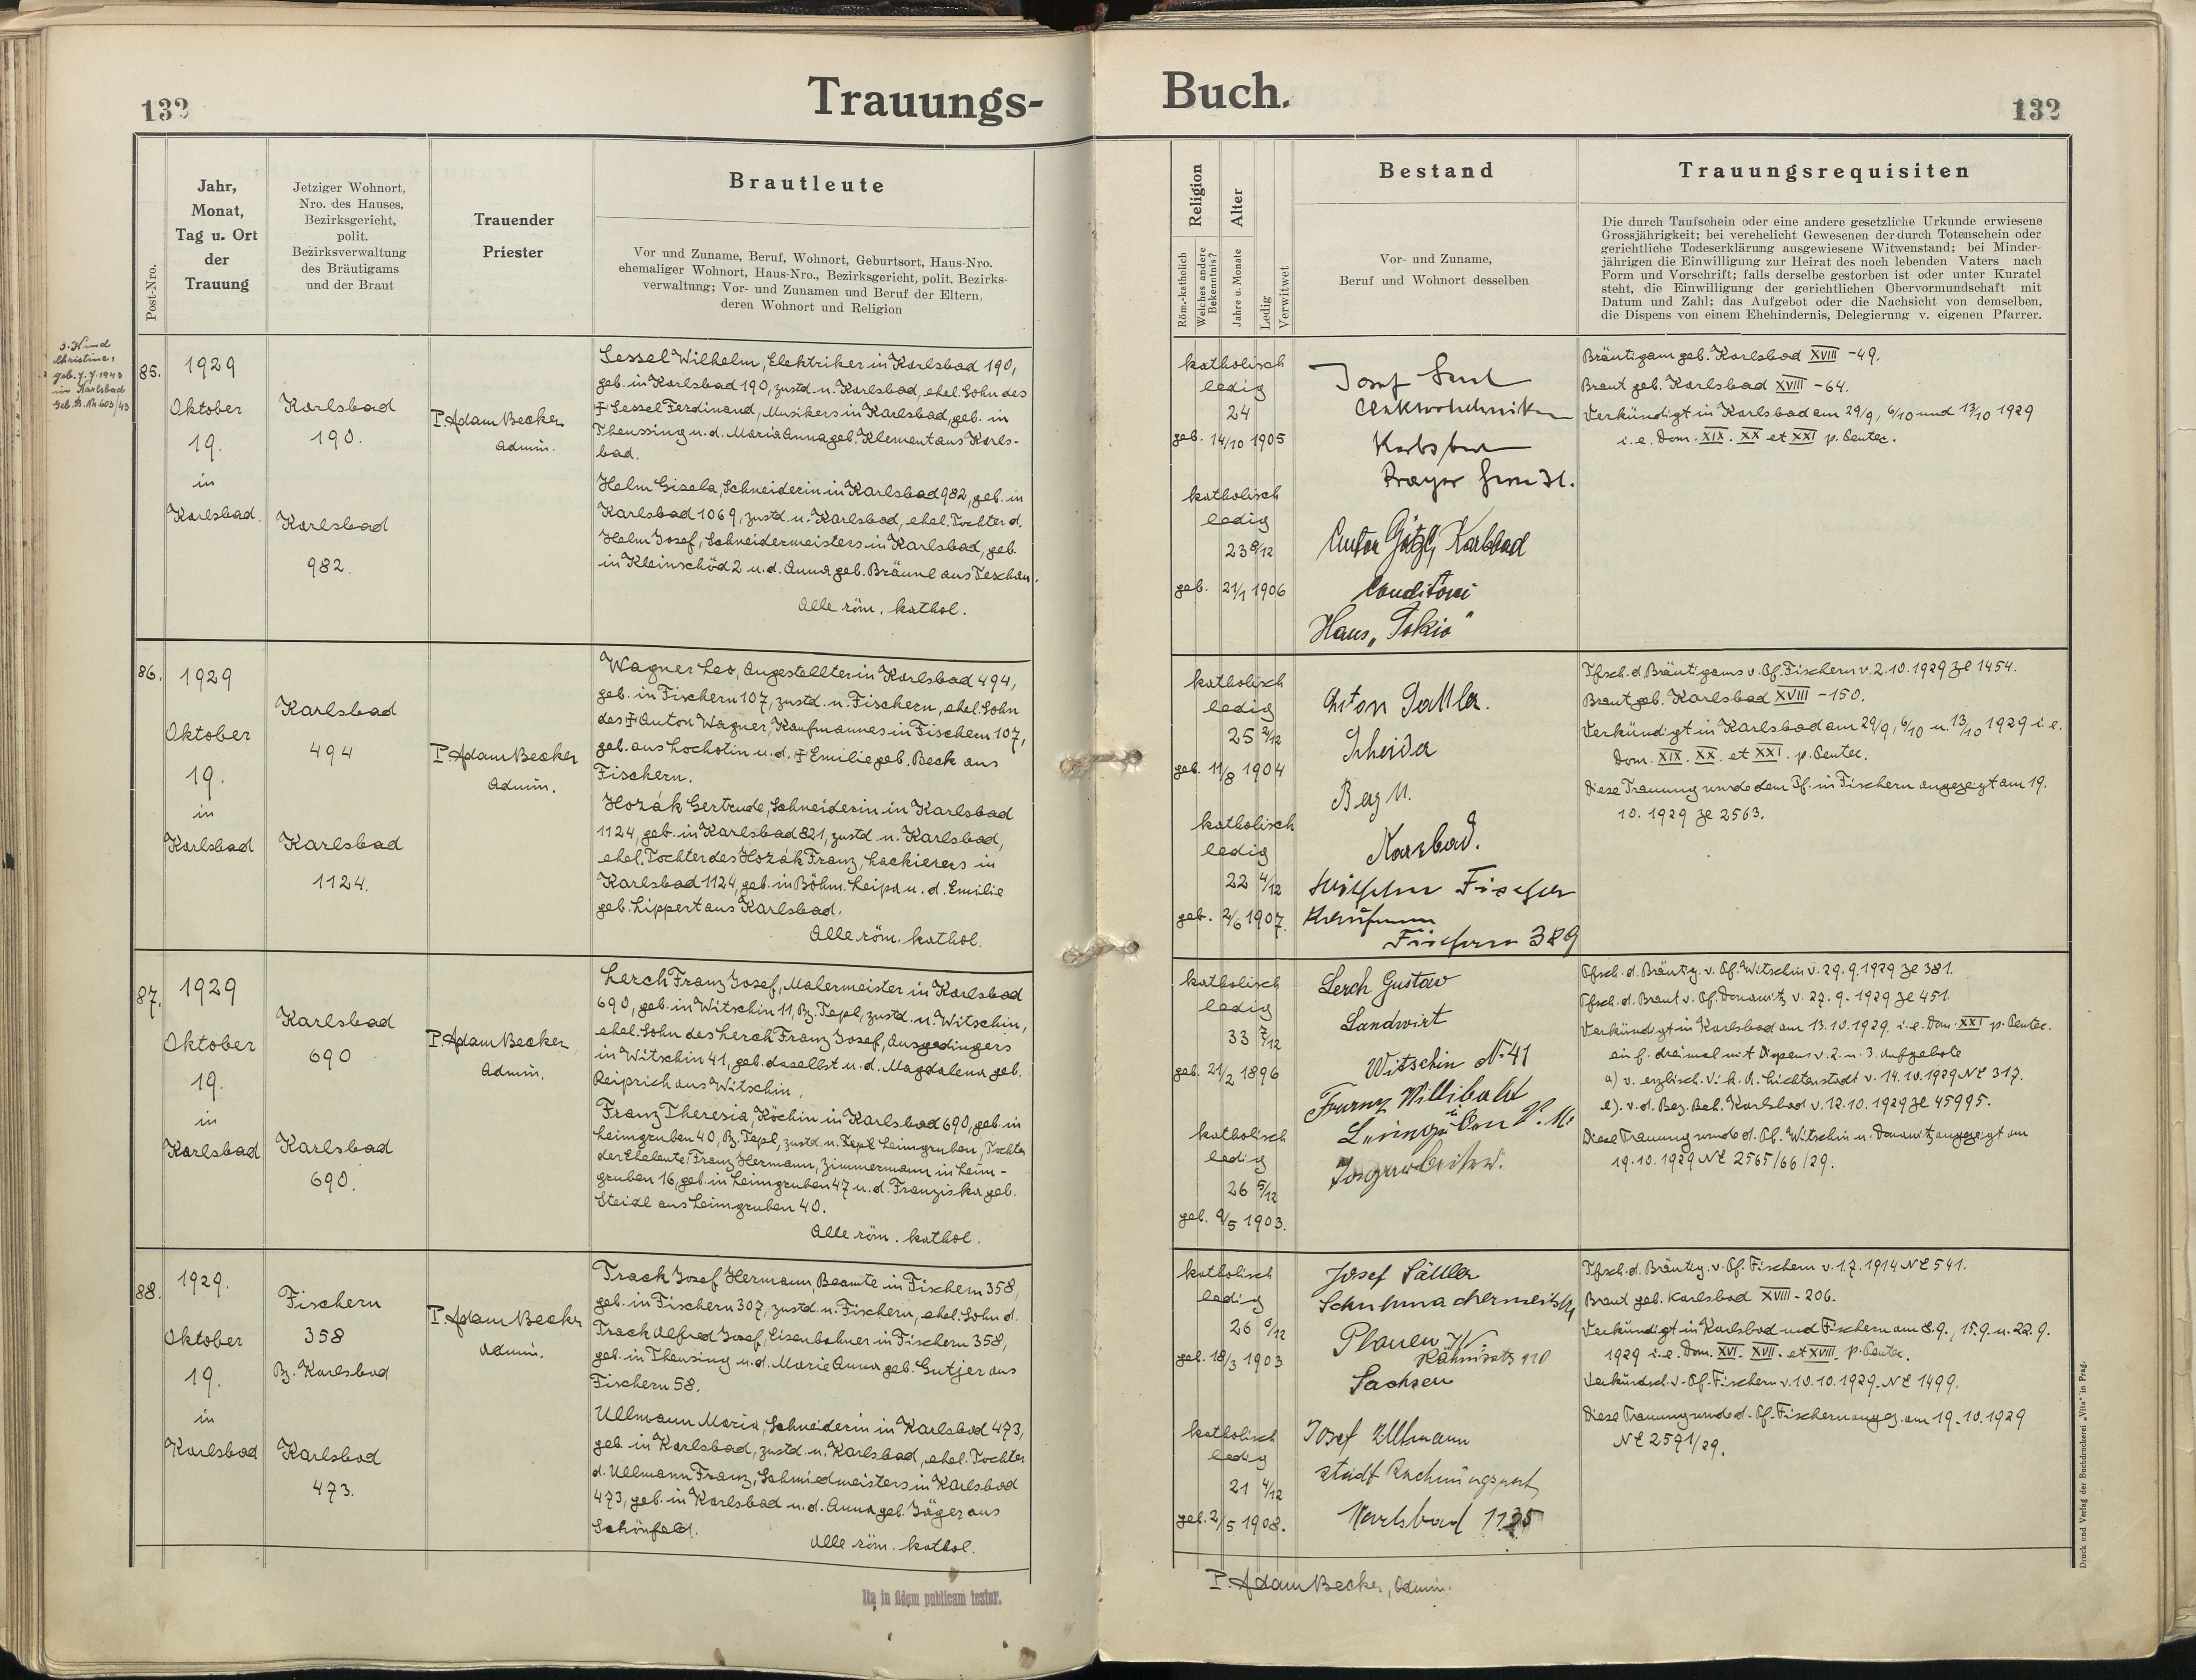 132
Trauungs-
Post-Nro.
Jahr,
Monat,
Tag u. Ort
der
Trauung
Jetziger Wohnort,
Nro. des Hauses,
Bezirksgericht,
polit.
Bezirksverwaltung
des Bräutigams
und der Braut
Trauender
Priester
Brautleute
Vor und Zuname, Beruf, Wohnort, Geburtsort, Haus-Nro.
ehemaliger Wohnort, Haus-Nro., Bezirksgericht, polit. Bezirks-
verwaltung; Vor- und Zunamen und Beruf der Eltern,
deren Wohnort und Religion
Kind
Christine,
geb. 7.7.1943
in Karlsbad
85.
1929
Oktober
19.
in
Karlsbad.
Karlsbad
190.
Karlsbad
982.
P. Adam Becker
Admin.
Sessel Wilhelm, Elektriker in Karlsbad 190,
geb. in Karlsbad 190, zustd. n. Karlsbad, ehel. Sohn des
Ŧ Sessel Ferdinand, Musikers in Karlsbad, geb. in
Theussing u. d. Maria Anna geb. Klement aus Karls-
bad.
Helm Gisela, Schneiderin in Karlsbad 982, geb. in
Karlsbad 1069, zustd. n. Karlsbad, ehel. Tochter d.
Helm Josef, Schneidermeisters in Karlsbad, geb.
in Kleinschöd 2 u. d. Anna geb. Bräunl aus Teschau.
Alle röm. kathol.
86.
1929
Oktober
19.
in
Karlsbad
Karlsbad
494
Karlsbad
1124.
P. Adam Becker
Admin.
Wagner Leo, Angestellter in Karlsbad 494,
geb. in Fischern 107, zustd. n. Fischern, ehel. Sohn
des Ŧ Anton Wagner, Kaufmannes in Fischern 107,
geb. aus Lochotin u. d. Ŧ Emilie geb. Beck aus
Fischern.
Hozák Gertrude, Schneiderin in Karlsbad
1124, geb. in Karlsbad 821, zustd. n. Karlsbad,
ehel. Tochter des Hozák Franz, Lackierers in
Karlsbad 1124, geb. in Böhm. Leipa u. d. Emilie
geb. Lippert aus Karlsbad.
Alle röm. kathol.
87.
1929
Oktober
19.
in
Karlsbad
Karlsbad
690
Karlsbad
690.
P. Adam Becker
Admin.
Lerch Franz Josef, Malermeister in Karlsbad
690, geb. in Witschin 11, Bz. Tepl, zustd. n. Witschin,
ehel. Sohn des Lerch Franz Josef, Ausgedingers
in Witschin 41, geb. daselbst u. d. Magdalena geb.
Reiprich aus Witschin.
Franz Theresia, Köchin in Karlsbad 690, geb. in
Leimgruben 40, Bz. Tepl, zustd. n. Tepl Leimgruben, Tochter
der Eheleute: Franz Hermann, Zimmermann in Leim-
gruben 16, geb. in Leimgruben 47 u. d. Franziska geb.
Steidl aus Leimgruben 40.
Alle röm. kathol.
88.
1929.
Oktober
19.
in
Karlsbad
Fischern
358
Bz. Karlsbad
Karlsbad
473.
P. Adam Becker
Admin.
Track Josef Hermann, Beamte in Fischern 358,
geb. in Fischern 307, zustd. n. Fischern, ehel. Sohn d.
Track Alfred Josef, Eisenbahner in Fischern 358,
geb. in Theusing u. d. Marie Anna geb. Gutjer aus
Fischern 58.
Ullmann Maria, Schneiderin in Karlsbad 473,
geb. in Karlsbad, zustd. n. Karlsbad, ehel. Tochter
d. Ullmann Franz, Schmiedmeisters in Karlsbad
473, geb. in Karlsbad u. d. Anna geb. Jäger aus
Schönfeld.
Alle röm. kathol.
Ita in fidem publicam testor.
Buch.
132
Religion
Röm.-katholisch
Welches andere
Bekenntnis?
Alter
Jahre u. Monate
Ledig
Verwitwet
Bestand
Vor- und Zuname,
Beruf und Wohnort desselben
Trauungsrequisiten
Die durch Taufschein oder eine andere gesetzliche Urkunde erwiesene
Grossjährigkeit; bei verehelicht Gewesenen der durch Totenschein oder
gerichtliche Todeserklärung ausgewiesene Witwenstand; bei Minder-
jährigen die Einwilligung zur Heirat des noch lebenden Vaters nach
Form und Vorschrift; falls derselbe gestorben ist oder unter Kuratel
steht, die Einwilligung der gerichtlichen Obervormundschaft mit
Datum und Zahl; das Aufgebot oder die Nachsicht von demselben,
die Dispens von einem Ehehindernis, Delegierung v. eigenen Pfarrer.
katholisch
ledig
24
geb. 14/10 1905
katholisch
ledig
23 8/12
geb. 21/1 1906
Josef
Elektrotechniker
Karlsbad
Anton Götzl, Karlsbad
Conditorei
Haus „Tokio"
Bräutigam geb. Karlsbad XVIII - 49.
Braut geb. Karlsbad XVIII - 64.
Verkündigt in Karlsbad am 29/9, 6/10 und 13/10 1929
i. e. Dom. XIX. XX et XXI p. Pentec.
katholisch
ledig
25 2/12
geb. 11/8 1904
katholisch
ledig
22 4/12
geb. 2/6 1907.
Anton Sattler.
Berg
Karlsbad.
Wilhelm Fischer
Kaufmann
Fischern 389
Tfsch. d. Bräutigams v. Pf. Fischern v. 2.10.1929 Ze 1454.
Braut geb. Karlsbad XVIII - 150.
Verkündigt in Karlsbad am 29/9, 6/10 u. 13/10 1929 i. e.
Dom. XIX. XX. et XXI. p. Pentec.
Diese Trauung wurde dem Pf. in Fischern angezeigt am 19.
10. 1929 Ze 2563.
katholisch
ledig
33 7/12
geb. 21/2 1896
katholisch
ledig
26 5/12
geb. 9/5 1903.
Lerch Gustav
Landwirt
Witschin № 41
Franz Willibald
Leimgruben
Tfsch. d. Bräutig. v. Pf. Witschin v. 29.9.1929 Ze 381.
Tfsch. d. Braut v. Pf. Donawitz v. 27.9.1929 Ze 451.
Verkündigt in Karlsbad am 13.10.1929. i. e. Dom. XXI p. Pentec.
ein f. dreimal mit Dispens v. 2. u. 3. Aufgebote
a) v. erzbisch. Vik. A. Lichtenstadt v. 14.10.1929 NE 317.
b). v. d. Bez. Beh. Karlsbad v. 12.10.1929 Ze 45995.
Diese Trauung wurde d. Pf. Witschin u. Donawitz angezeigt am
19.10.1929 NE 2565/66/29.
katholisch
ledig
26 6/12
geb. 18/3 1903
katholisch
ledig
21 4/12
geb. 2/5 1908.
Josef Sattler
Schuhmachermeister
Plauen i/V.
Sachsen
Josef Ullmann
Karlsbad 1135
Tfsch. d. Bräutig. v. Pf. Fischern v. 1.7.1914 NE 541.
Braut geb. Karlsbad XVIII - 206.
Verkündigt in Karlsbad und Fischern am 8.9., 15.9. u. 22.9.
1929 i. e. Dom. XVI. XVII. et XVIII. p. Pentec.
Verkündsch. v. Pf. Fischern v. 10.10.1929. NE 1499.
Diese Trauung wurde d. Pf. Fischern angez. am 19.10.1929
NE 2571/29.
P. Adam Becker, Admin.
Druck und Verlag der Buchdruckerei „Vita" in Prag.